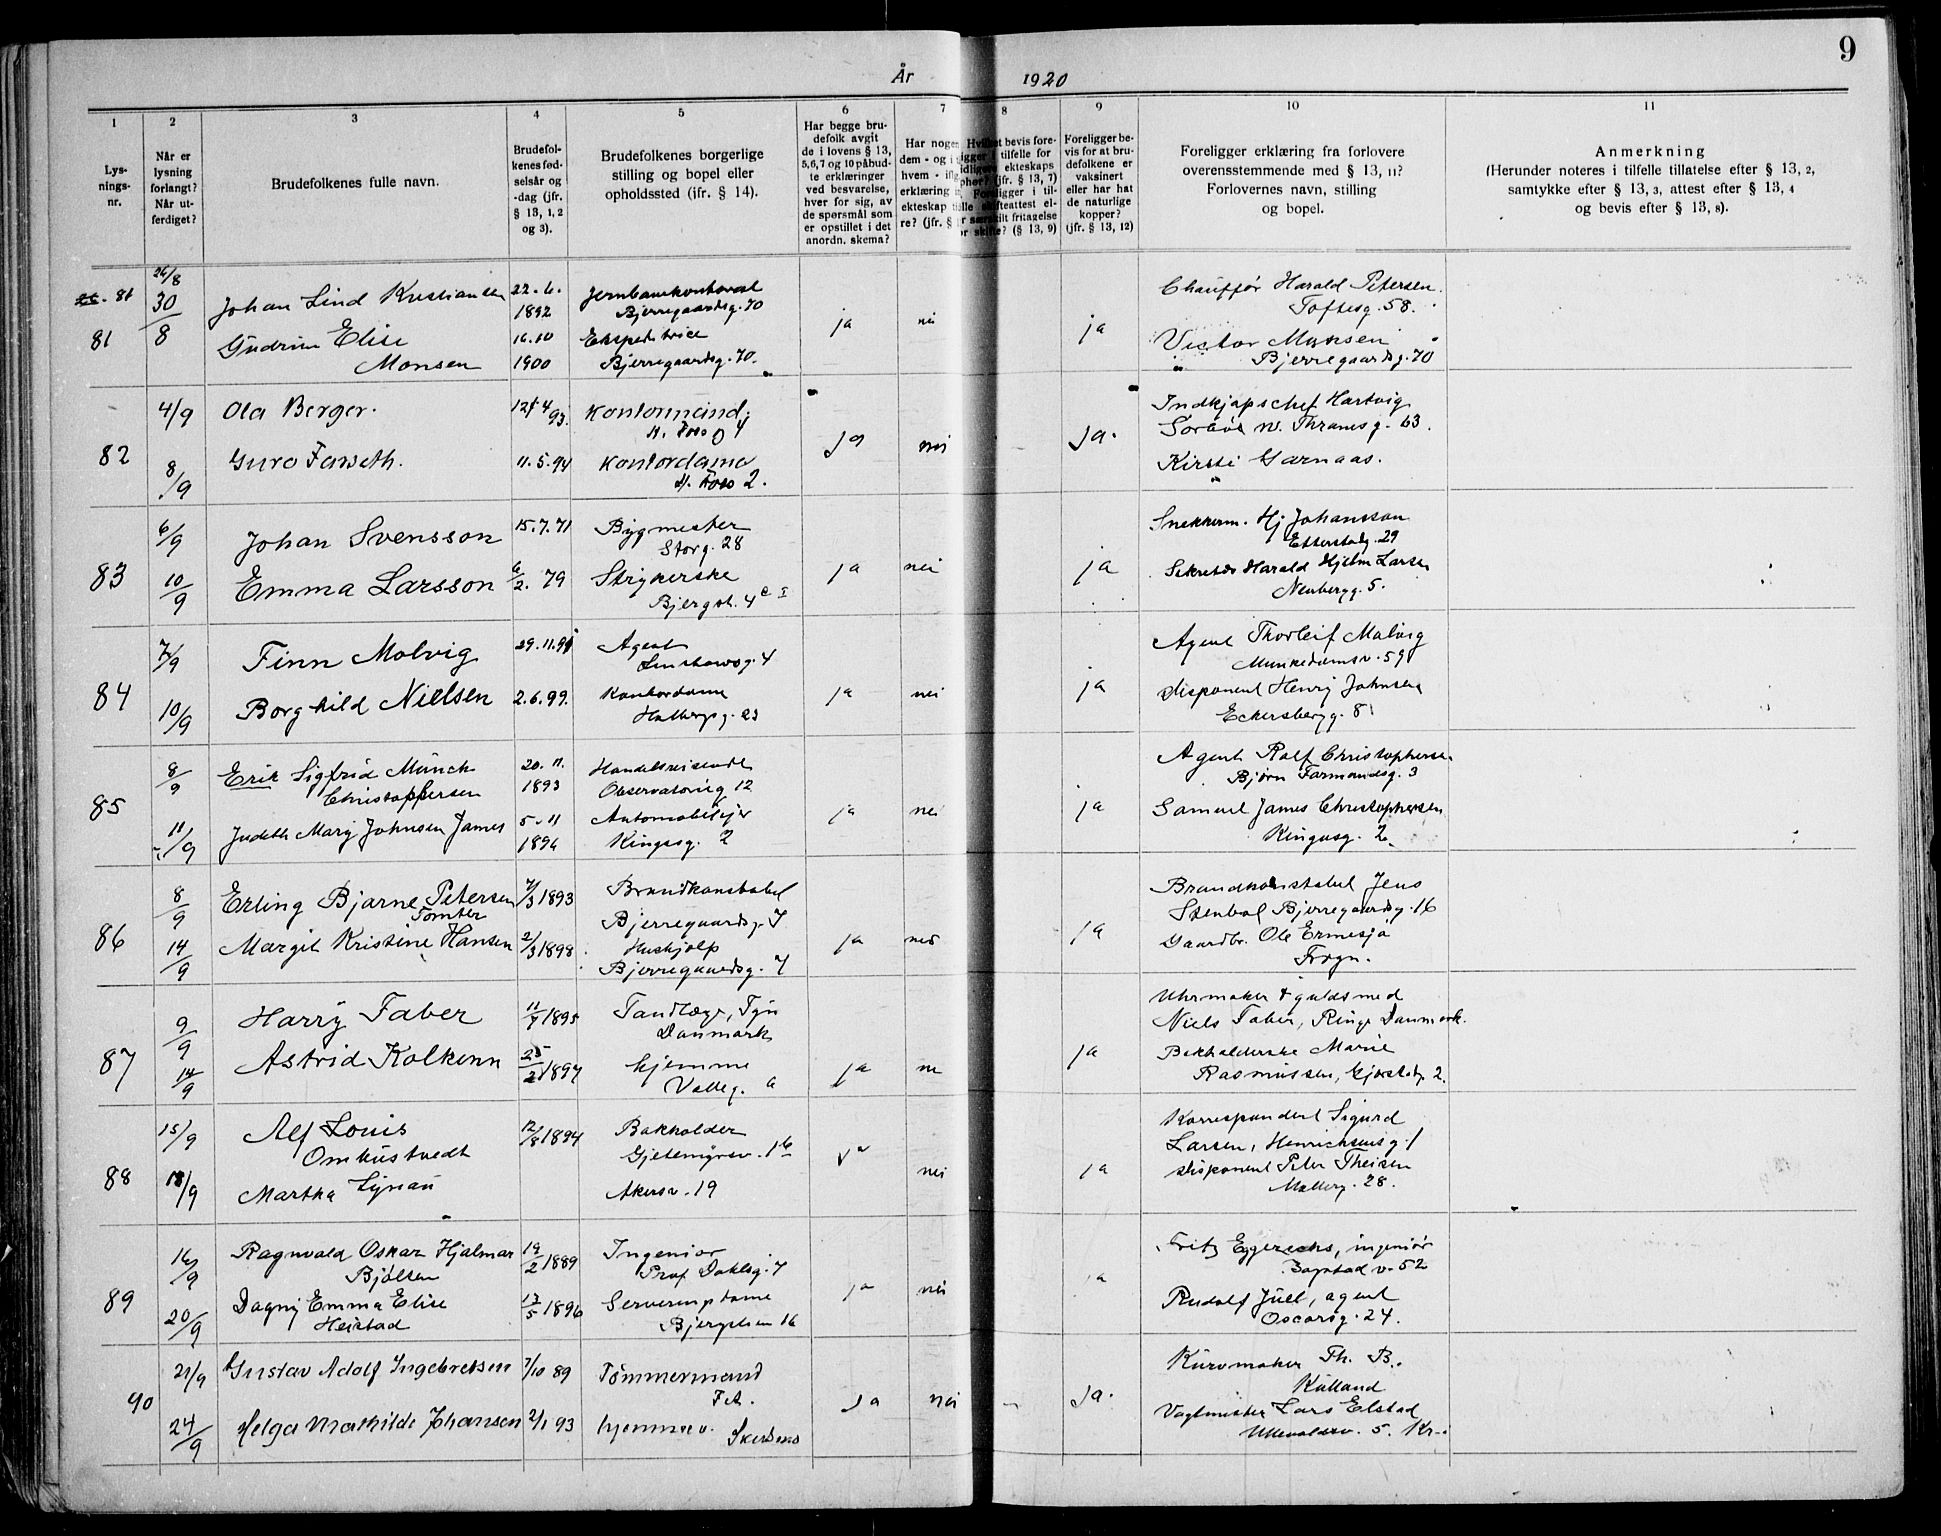 År 1920
9
1
2
3
4
5
6
7
8
9
10
11
Lys-
nings-
nr.
Når er
lysning
forlangt?
Når ut-
ferdiget?
Brudefolkenes fulle navn.
Brudefol-
kenes fød-
selsår og
-dag (jfr.
§ 13, 1, 2
og 3).
Brudefolkenes borgerlige
stilling og bopel eller
opholdssted (ifr. § 14).
Har begge bru-
defolk avgit
de i lovens § 13,
5,6,7 og 10 påbud-
te erklæringer
ved besvarelse,
hver for sig, av
de spørsmål som
er opstillet i det
anordn. skema?
Har nogen
dem - og i
hvem -
erklæring
ekteskap
re? (jfr. §
Hvilket bevis fore-
ligger i tilfelle for
tidligere ekteskaps
opher? (jfr. § 13, 7)
Foreligger i til-
felle skifteattest el-
ler særskilt fritagelse
for skifte? (§ 13, 9)
Foreligger be-
vis for at bru-
defolkene er
vaksinert
eller har hat
de naturlige
kopper?
(jfr. § 13, 12)
Foreligger erklæring fra forlovere
overensstemmende med § 13, 11?
Forlovernes navn, stilling
og bopel.
Anmerkning
(Herunder noteres i tilfelle tillatelse efter § 13, 2,
samtykke efter § 13, 3, attest efter § 13, 4
og bevis efter § 13, 8).
81
30/8
Johan Lind Kristiansen
22.6.
1892
Bjerregaardsg. 70
Chauffør Harald Petersen
Toftesg. 58.
81
Gudrun Elise
Monsen
16.10
1900
Ekspeditrice
Bjerregaardsg. 70.
ja
nei
ja
Victor Monsen
Bjerregaardsg. 70
82
4/9
Ola Berger.
12/4 93.
Kontormand
Indkjøpschef Hartvig
M. Thranesg. 63.
8/9
Guro
11.5.94
Kontordame
ja
nei
ja.
Kirsti Garnaas.
83
6/9
Johan Svensson
15.7.71
Bygmester
Storg. 28
Snekkerm. Hj Johansson
Etterstadg. 29
10/9
Emma Larsson
6/2. 79
Strykerske
Bjergst. 4
ja
nei
ja
Sekretær Harald Hjelm Larsen
Neubergg. 5.
84
7/9
Finn Molvig
29.11.
Agent
Linstowsg. 4
Agent Thorleif Molvig
Munkedamsv. 59
10/9
Borghild Nielsen
2.6.99.
Kontordame
Holbergsg. 23
ja
nei
ja
Disponent Henry Johnsen
Eckersbergg. 8
85
8/9
Erik Sigfrid Münch
Christophersen
20.11.
1893
Handelsreisende
Observatorieg 12
Agent Rolf Christophersen
Bjørn Farmandsg. 3
11/9
Judith Mary Johnsen James
5-11
1896
Kingosg. 2
ja
nei
ja
Samuel James Christophersen
Kingosg. 2.
86
8/9
Erling Bjarne Petersen
Tomter
7/3 1893
Brandkonstabel
Bjerregaardsg. 7
Brandkonstabel Jens
Stenbøl Bjerregaardsg. 16
14/9
Margit Kristine Hansen
2/3 1898
Hushjelp
Bjerregaardsg. 7
ja
nei
ja
Gaardbr. Ole Ermesjø
Frogn.
87
9/9
Harry Faber
11/7 1895
Tandlæge, Fyn
Danmark
Uhrmaker & guldsmed
Niels Faber, Ringe Danmark.
14/9
Astrid Kolkenn
25/2 1897
hjemme
ja
nei
ja
Bokholderske Marie
Rasmussen, 2.
88
15/9
Alf Louis
Omhustvedt
12/8 1894
Bokholder
Gjetemyrsv. 1b
Korrespondent Sigurd
Larsen, Henrichsensg. 1
18/9
Martha Lynau
Akersv. 19
ja
nei
ja
Disponent Peter Theisen
Møllerg. 28.
89
16/9
Ragnvald Oskar Hjalmar
Bjølsen
19/2 1889
Ingeniør
Prof Dahlsg. 7
Fritz Eggerichs, ingeniør
Bogstad v. 52
20/9
Dagny Emma Elise
Heistad
13/5 1896
Serveringsdame
Bjergstien 16
ja
nei
ja
Rudolf Juel, agent
Oscarsg. 24.
90
21/9
Gustav Adolf Ingebretsen
7/10 89
Tømmermand
Fet.
Kurvmaker Th. B.
Külland
24/9
Helga Mathilde Johansen
2/1 93
hjemmev.
ja
nei
ja.
Vagtmester Lars Elstad
Ullevoldsv. 5. Kr.